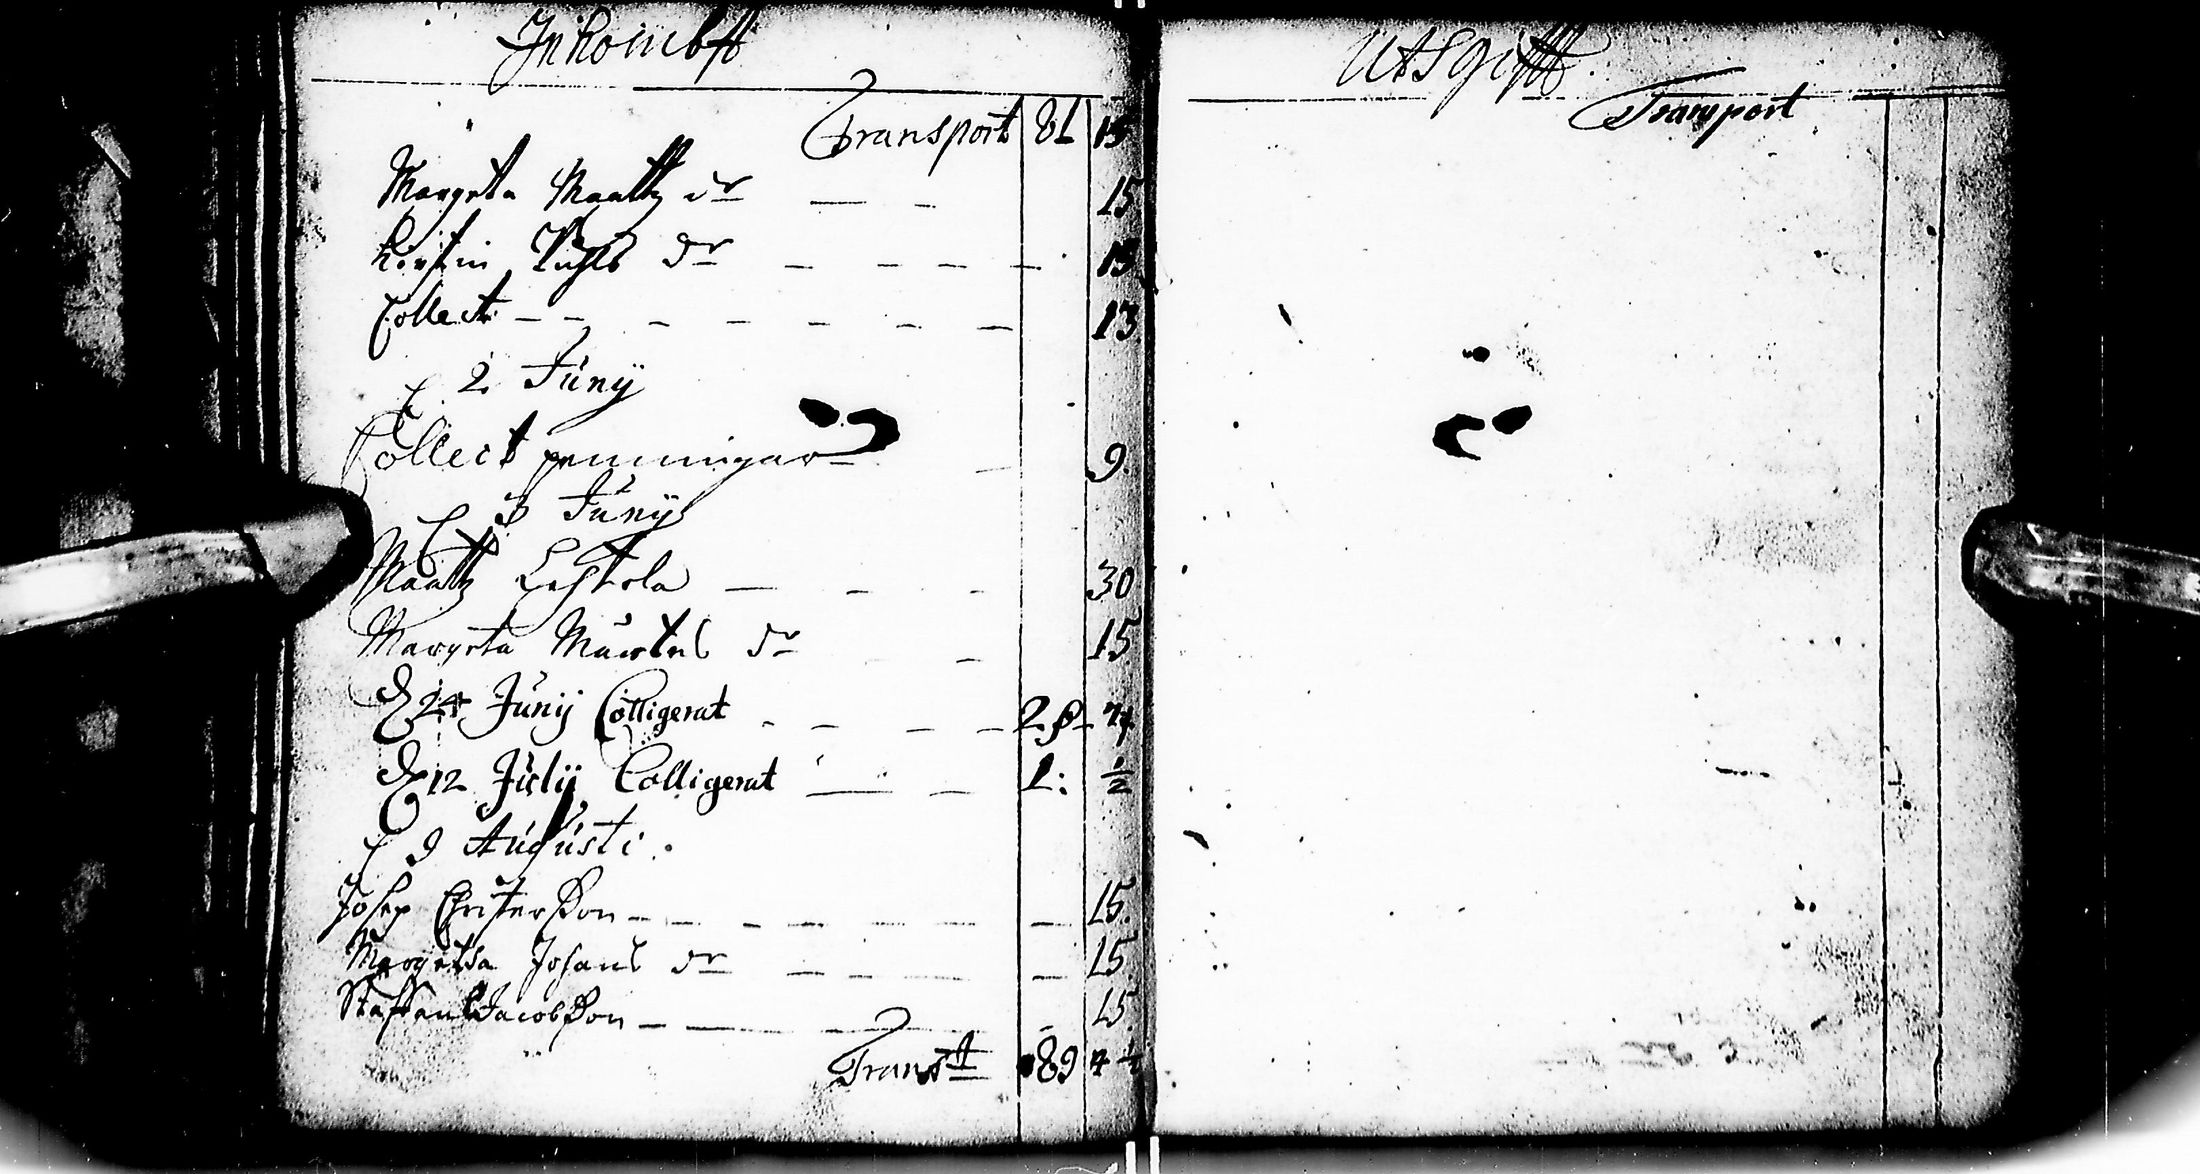 Inkombst
Transport 81 15
Margeta Maattz dr 15
Kirstin dr 15
Collect 13
2 Junÿ
Collect penningar 9
3 Junÿ
Maattz Lehtola 30
Margeta Mårtens dr 15
24 Junij Colligerat 2
12 Julij Colligerat 1: ½
9 Augusti.
Josep Christersson 15.
Margetta Johans dr 15
Staffan Jacobsson 15.
Transt 89 4 ½
Utgifft.
Transport